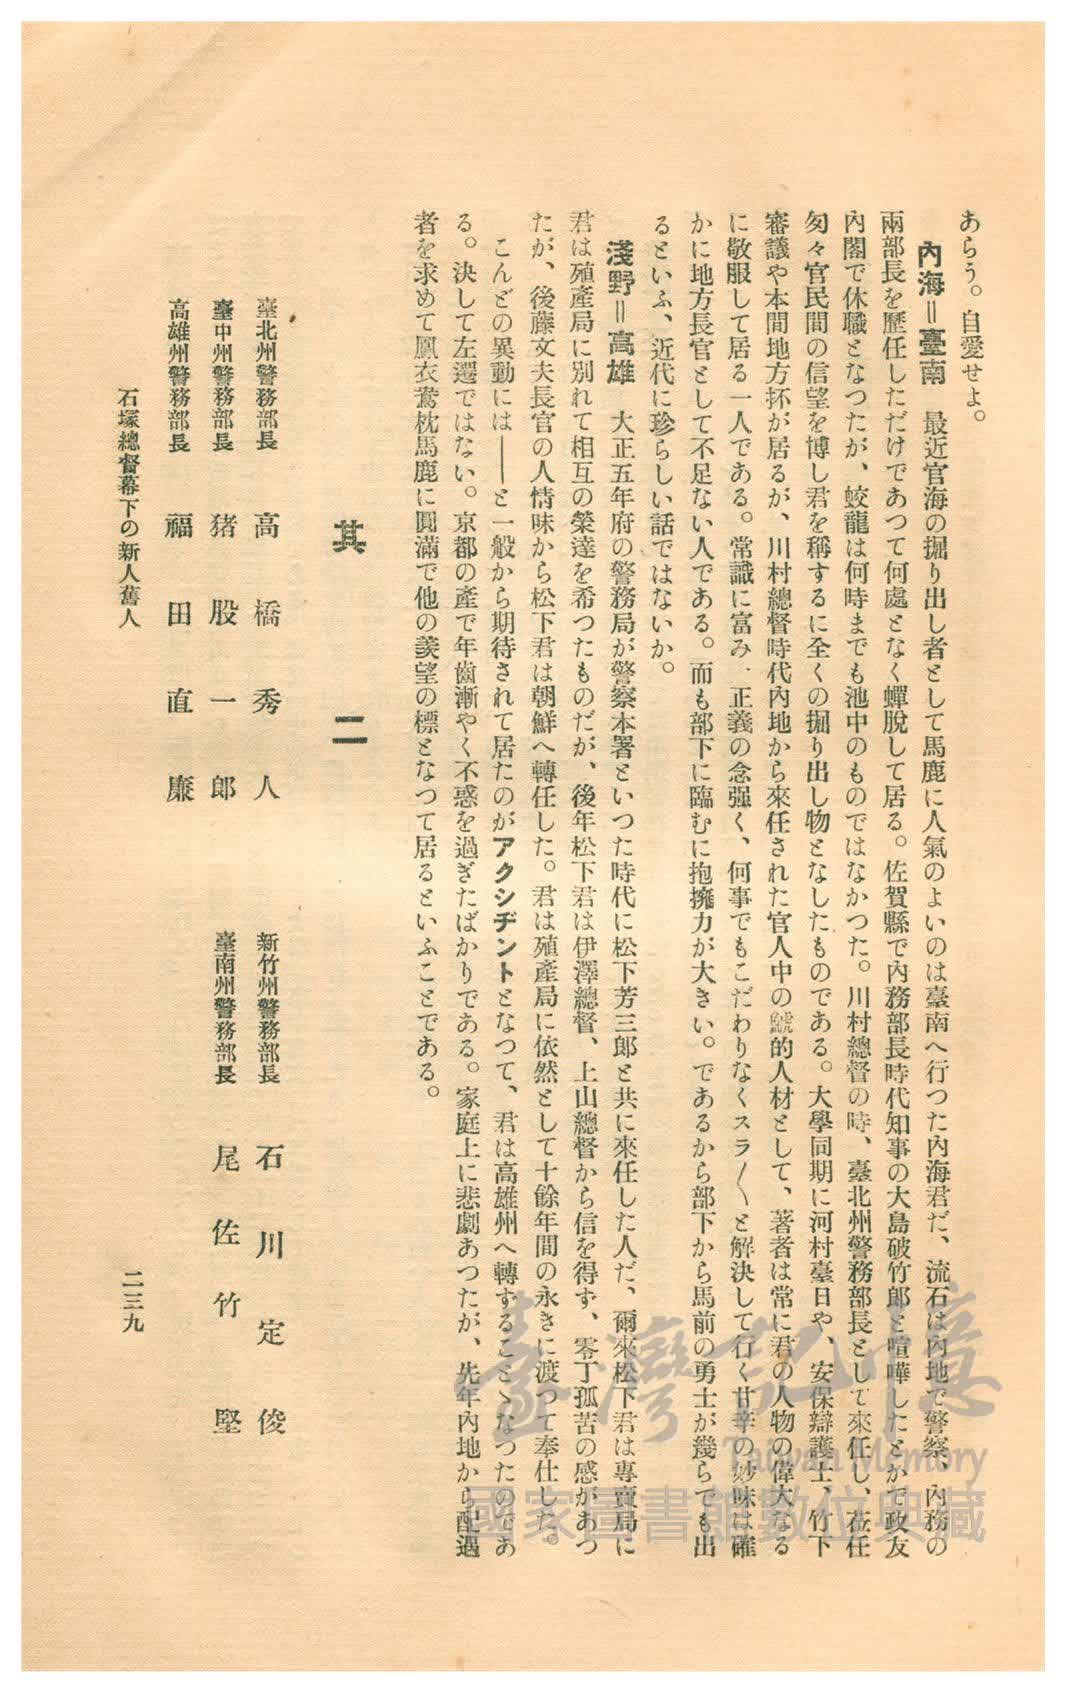 あらう。自愛せよ。
內海＝臺南　最近官海の掘り出し者として馬鹿に人氣のよいのは臺南へ行つた內海君だ、流石は內地で警察、內務の
兩部長を歷任しただけであつて何處となく蟬脫して居る。佐賀縣で內務部長時代知事の大島破竹郎と喧嘩したとかで政友
內閣で休職となつたが、蛟龍は何時までも池中のものではなかつた。川村總督の時、臺北州警務部長として來任し、莅任
匆々官民間の信望を博し君を稱するに全くの掘り出し物となしたものである。大學同期に河村臺日や、安保辯護士、竹下
審議や本間地方抔が居るが、川村總督時代內地から來任された官人中の的人材として、著者は常に君の人物の偉大なる
に敬服して居る一人である。常識に富み、正義の念强く、何事でもこだわりなくスラ〳〵と解決して行く甘辛の妙味は確
かに地方長官として不足ない人である。而も部下に臨むに抱擁力が大きい。であるから部下から馬前の勇士が幾らでも出
るといふ、近代に珍らしい話ではないか。
淺野＝高雄　大正五年府の警務局が警察本署といつた時代に松下芳三郎と共に來任した人だ、爾來松下君は專賣局に
君は殖產局に別れて相互の榮達を希つたものだが、後年松下君は伊澤總督、上山總督から信を得ず、零丁孤苦の感があつ
たが、後藤文夫長官の人情味から松下君は朝鮮へ轉任した。君は殖產局に依然として十餘年間の永きに渡つて奉仕した。
こんどの異動には――と一般から期待されて居たのがアクシヂントとなつて、君は高雄州へ轉することゝなつたのであ
る。決して左遷ではない。京都の產で年齒漸やく不惑を過ぎたばかりである。家庭上に悲劇あつたが、先年內地から配遇
者を求めて鳳衣鴦枕馬鹿に圓滿で他の羨望の標となつて居るといふことである。
其二
臺北州警務部長　高橋秀人
新竹州警務部長　石川定俊
臺中州警務部長　猪股一郎
臺南州警務部長　尾佐竹堅
高雄州警務部長　福田直廉
石塚總督幕下の新人舊人
二三九
臺灣記憶
Taiwan Memory
國家圖書館數位典藏